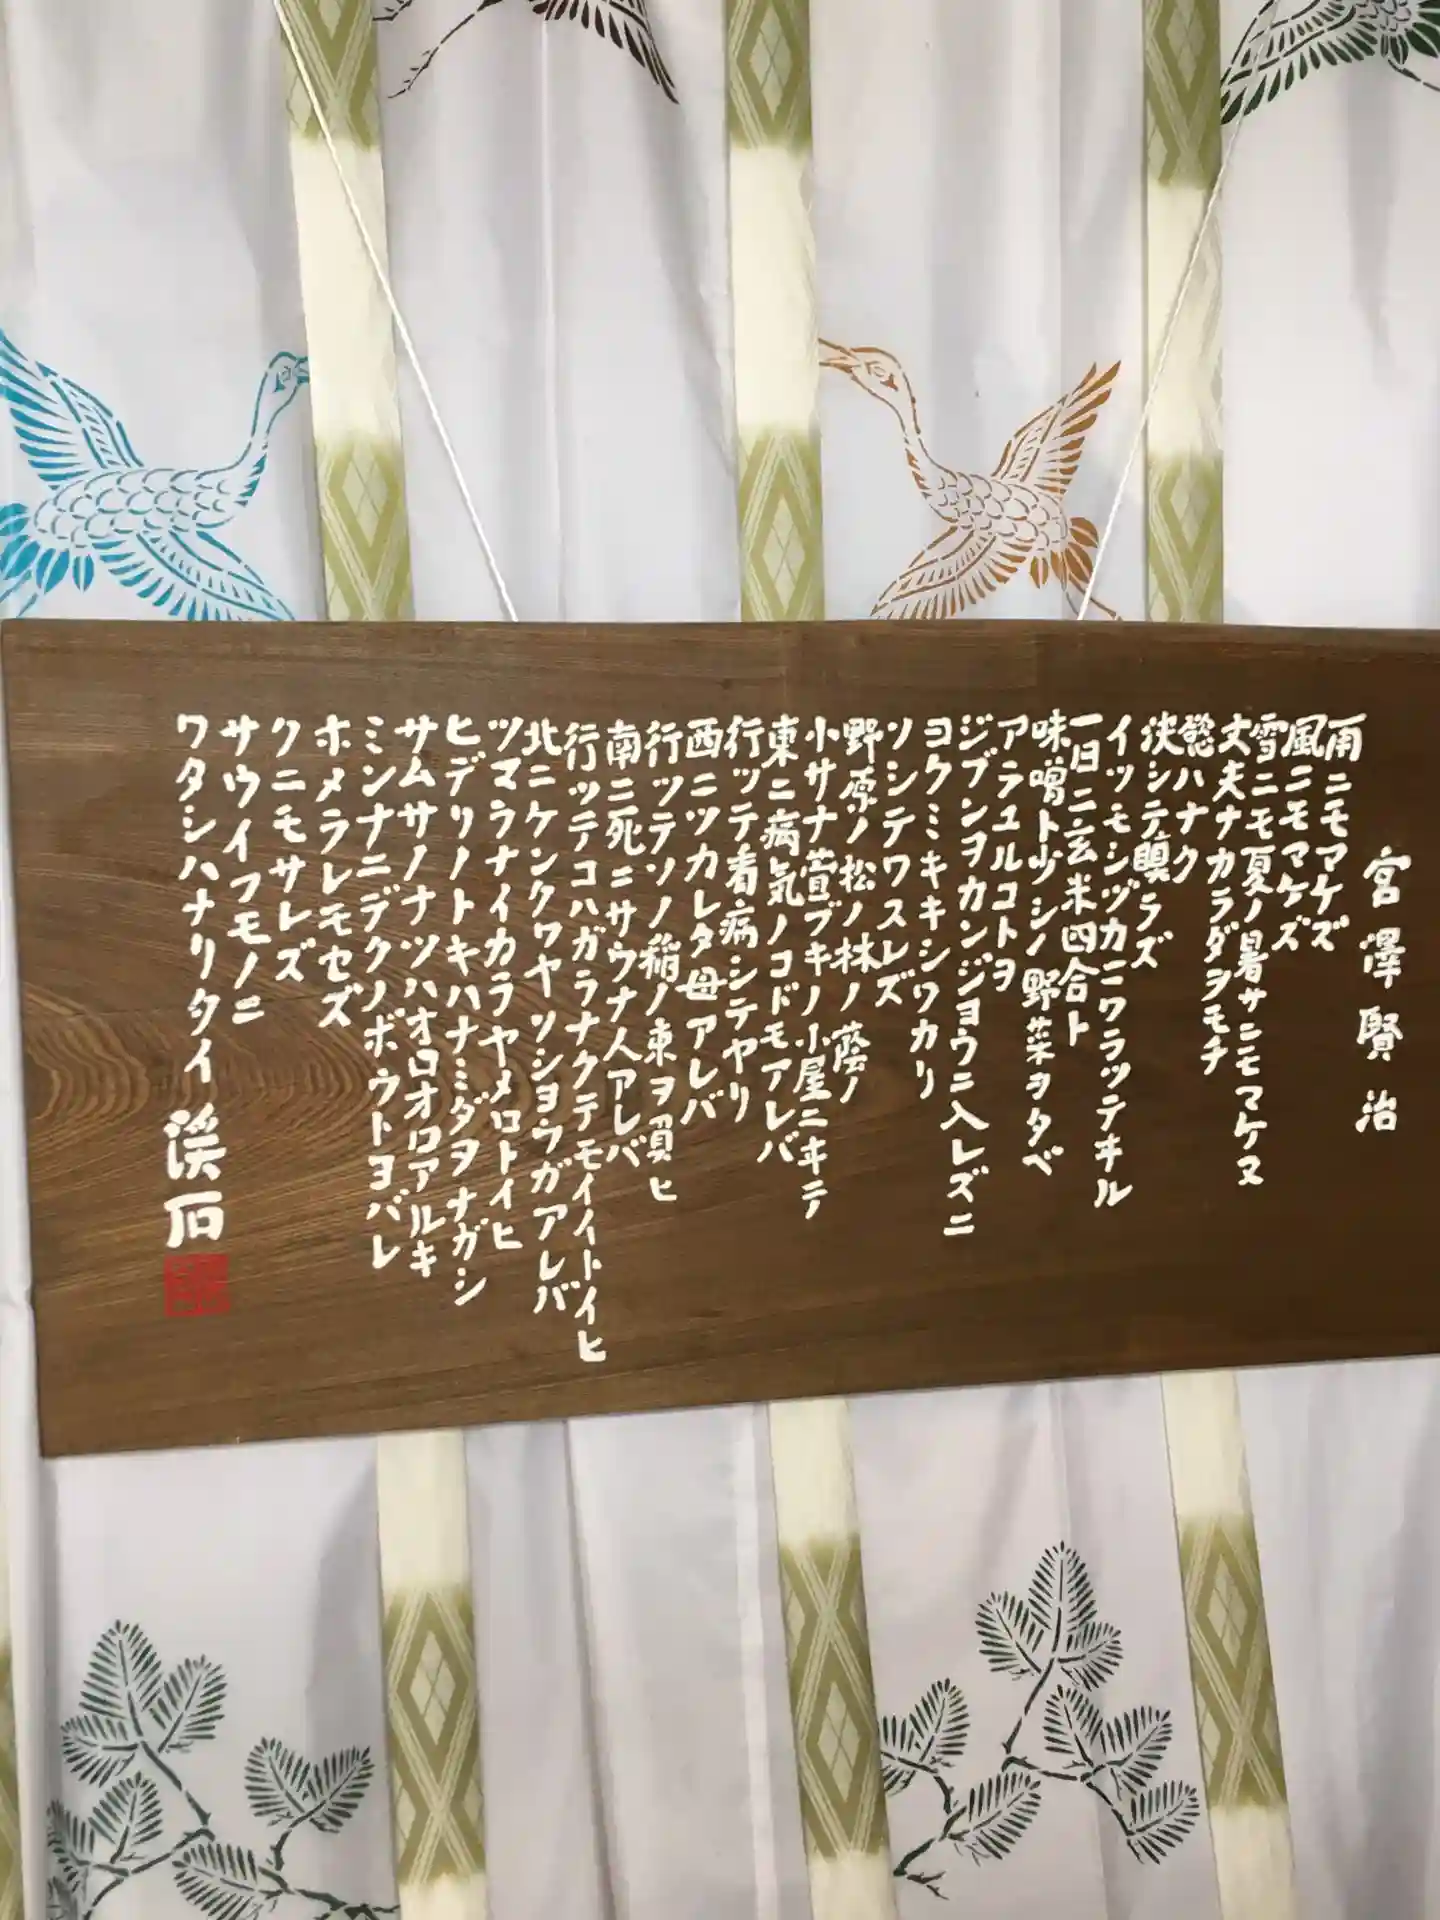 宮澤賢治
雨ニモマケズ
風ニモマケズ
雪ニモ夏ノ暑サニモマケヌ
丈夫ナカラダヲモチ
慾ハナク
決シテ瞋ラズ
イツモシヅカニワラッテヰル
一日ニ玄米四合ト
味噌ト少シノ野菜ヲタベ
アラユルコトヲ
ジブンヲカンジョウニ入レズニ
ヨクミキキシワカリ
ソシテワスレズ
野原ノ松ノ林ノ蔭ノ
小サナ萱ブキノ小屋ニヰテ
東ニ病気ノコドモアレバ
行ッテ看病シテヤリ
西ニツカレタ母アレバ
行ッテソノ稲ノ束ヲ負ヒ
南ニ死ニサウナ人アレバ
行ッテコハガラナクテモイイトイヒ
北ニケンクヮヤソショウガアレバ
ツマラナイカラヤメロトイヒ
ヒデリノトキハナミダヲナガシ
サムサノナツハオロオロアルキ
ミンナニデクノボウトヨバレ
ホメラレモセズ
クニモサレズ
サウイフモノニ
ワタシハナリタイ 渓石